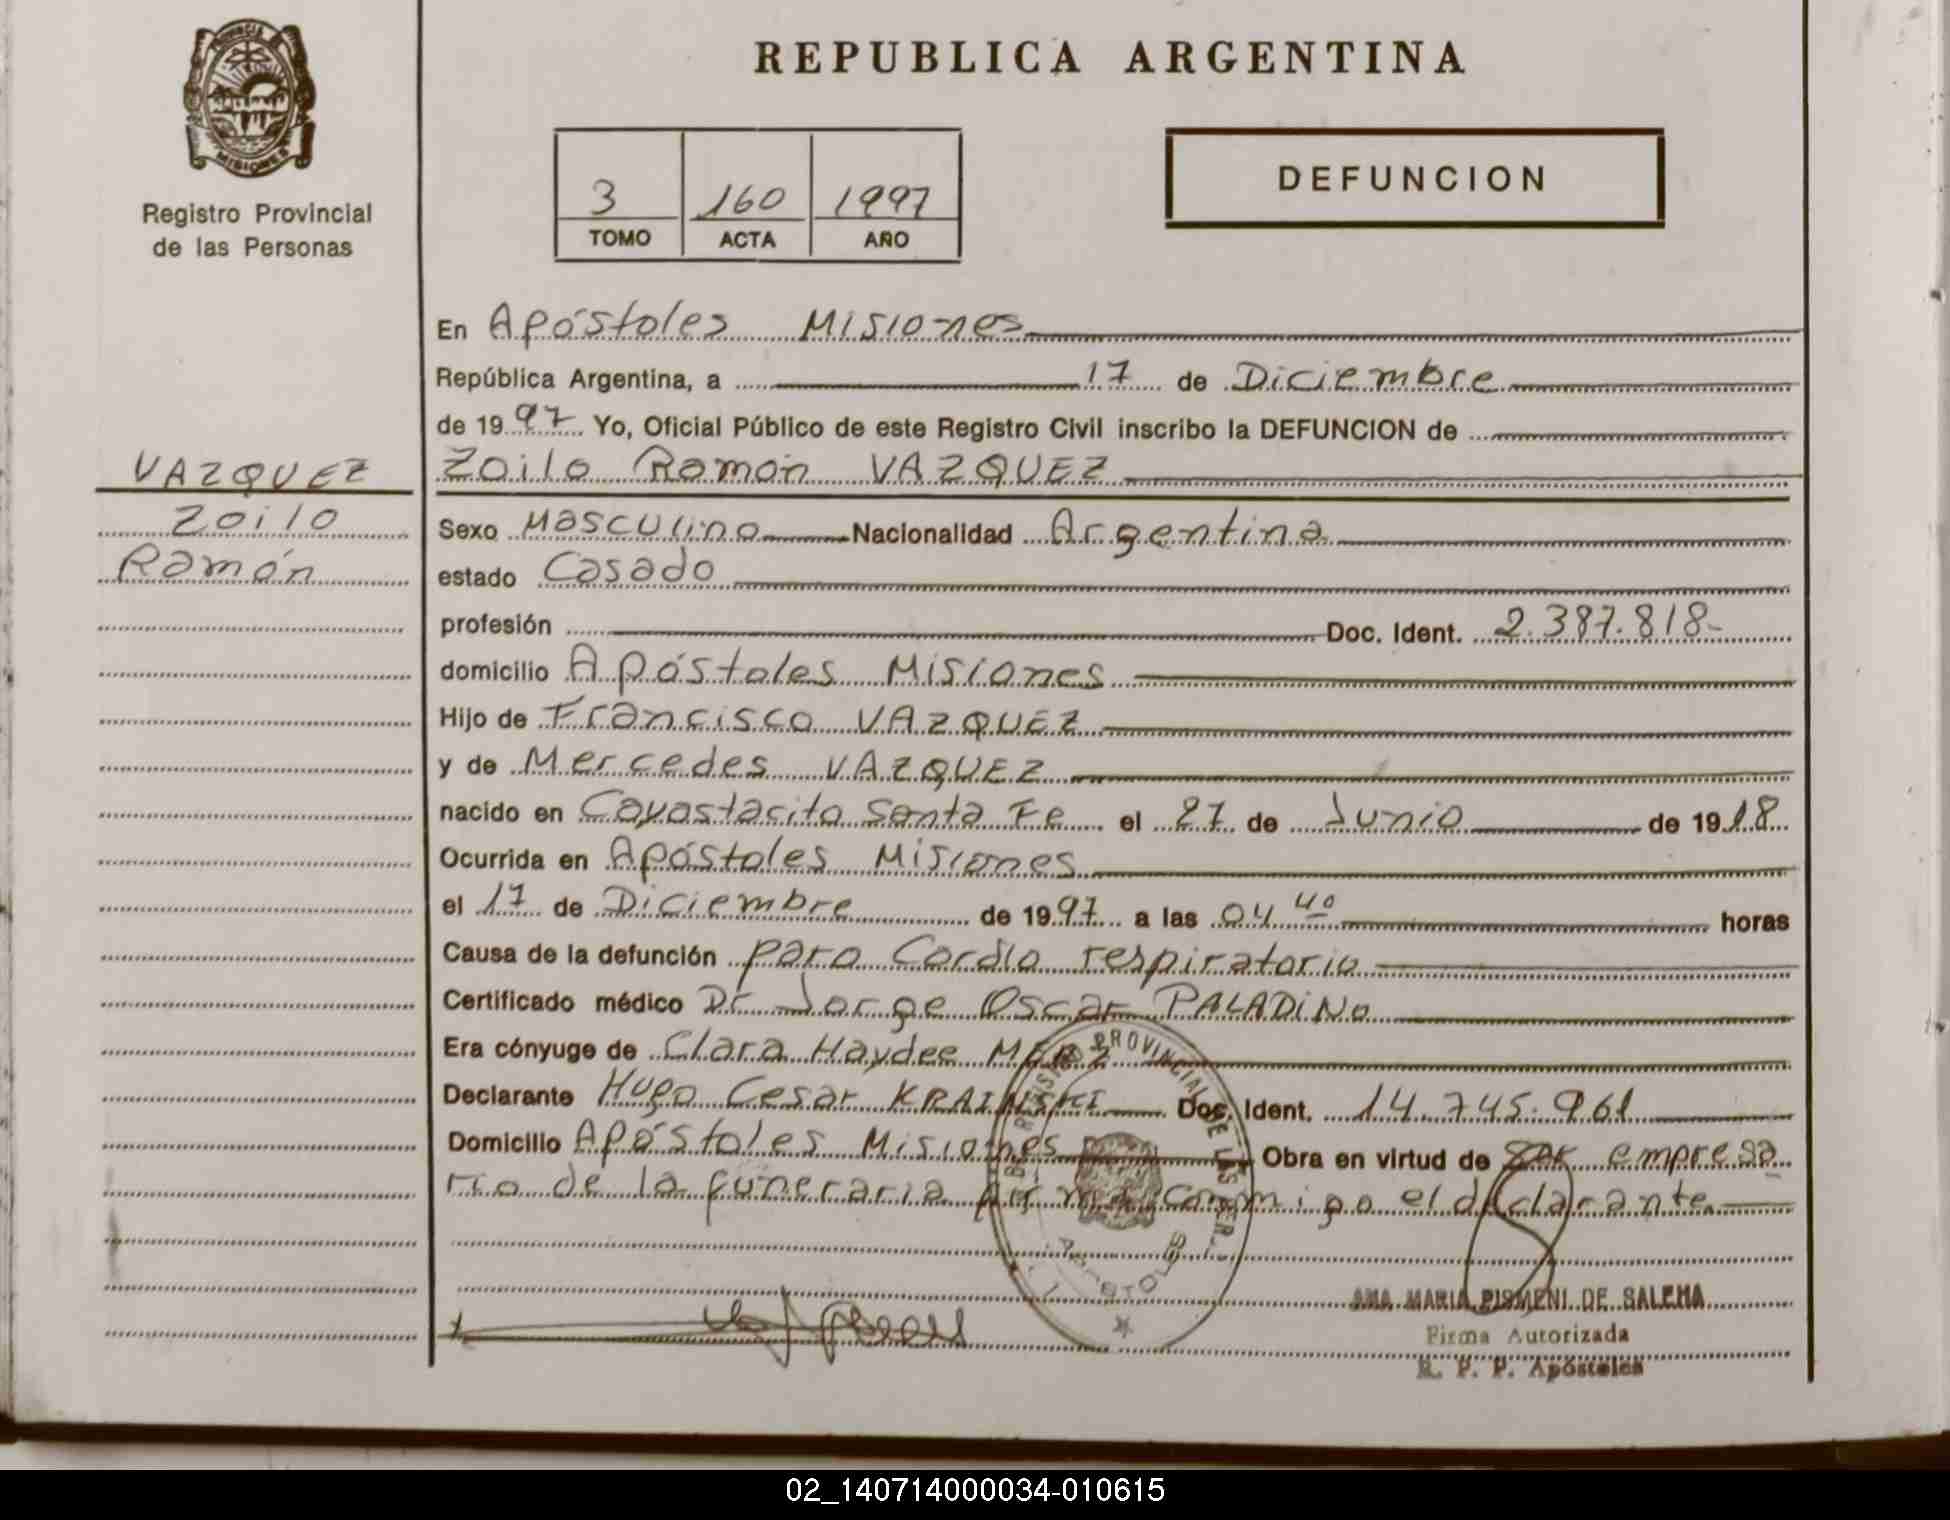 PROVINCIA DE
MISIONES
Registro Provincial
de las Personas
REPUBLICA ARGENTINA
3 160 1997
TOMO ACTA AÑO
DEFUNCION
VAZQUEZ
Zoilo
Ramón
En Apóstoles Misiones
República Argentina, a 17 de Diciembre
de 1997 Yo, Oficial Público de este Registro Civil inscribo la DEFUNCION de
Zoilo Ramón VAZQUEZ
Sexo Masculino Nacionalidad Argentina
estado Casado
profesión Doc. Ident. 2.387.818-
domicilio Apóstoles Misiones
Hijo de Francisco VAZQUEZ
y de Mercedes VAZQUEZ
nacido en Cayastacito Santa Fe el 27 de Junio de 1918
Ocurrida en Apóstoles Misiones
el 17 de Diciembre de 1997 a las 04 40 horas
Causa de la defunción paro Cardio respiratorio
Certificado médico Dr Jorge Oscar PALADINO
Era cónyuge de Clara Haydee
Declarante Hugo Cesar KRAINSKI Doc. Ident. 14.745.961
Domicilio Apóstoles Misiones Obra en virtud de ser empresa
rio de la funeraria firma conmigo el declarante.
PROVINCIAL DE LAS PER.
APOSTOLES
ANA MARIA PISMENI DE SALEHA
Firma Autorizada
R. P. P. Apóstoles
02_140714000034-010615